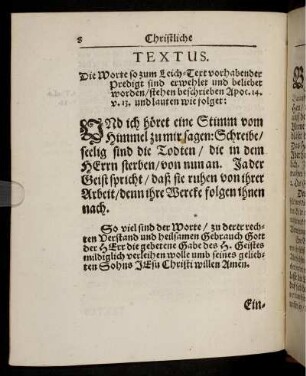 8 Christliche
TEXTUS.
Die Worte so zum Leich-Text vorhabender
Predigt sind erwehlet und beliebet
worden/ stehen beschrieben Apoc. 14.
v. 13. und lauten wie folget:
UNd ich höret eine Stimm vom
Himmel zu mir sagen: Schreibe/
seelig sind die Todten/ die in dem
HErrn sterben/ von nun an. Ja der
Geist spricht/ daß sie ruhen von ihrer
Arbeit/ denn ihre Wercke folgen ihnen
nach.
So viel sind der Worte/ zu derer rech-
ten Verstand und heilsamen Gebrauch Gott
der HErr die gebetene Gabe des H. Geistes
mildiglich verleihen wolle umb seines gelieb-
ten Sohns JEsu Christi willen Amen.
Ein-